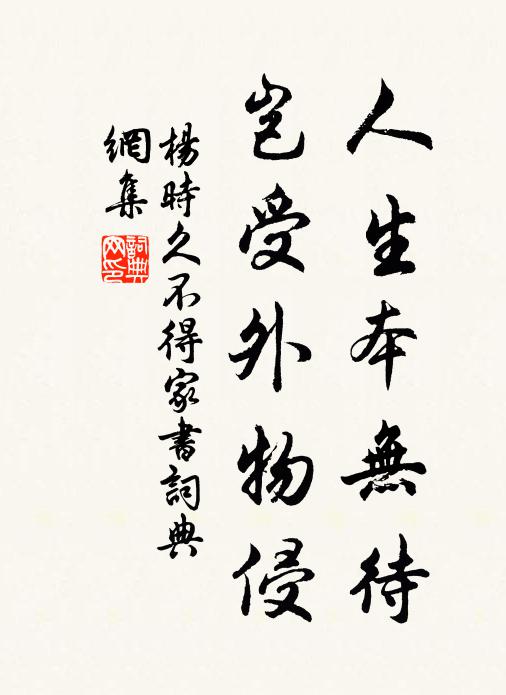 人生本無待
豈受外物侵
楊時久不得家書詞典
網集
詞典
网印